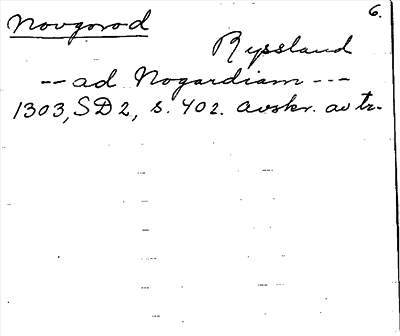 6.
Novgorod
Ryssland
-- ad Nogardiam ---
1303, SD 2, s. 402. avskr. av tr.